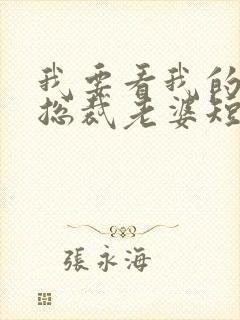 我要看我的
总裁老婆短
張永海